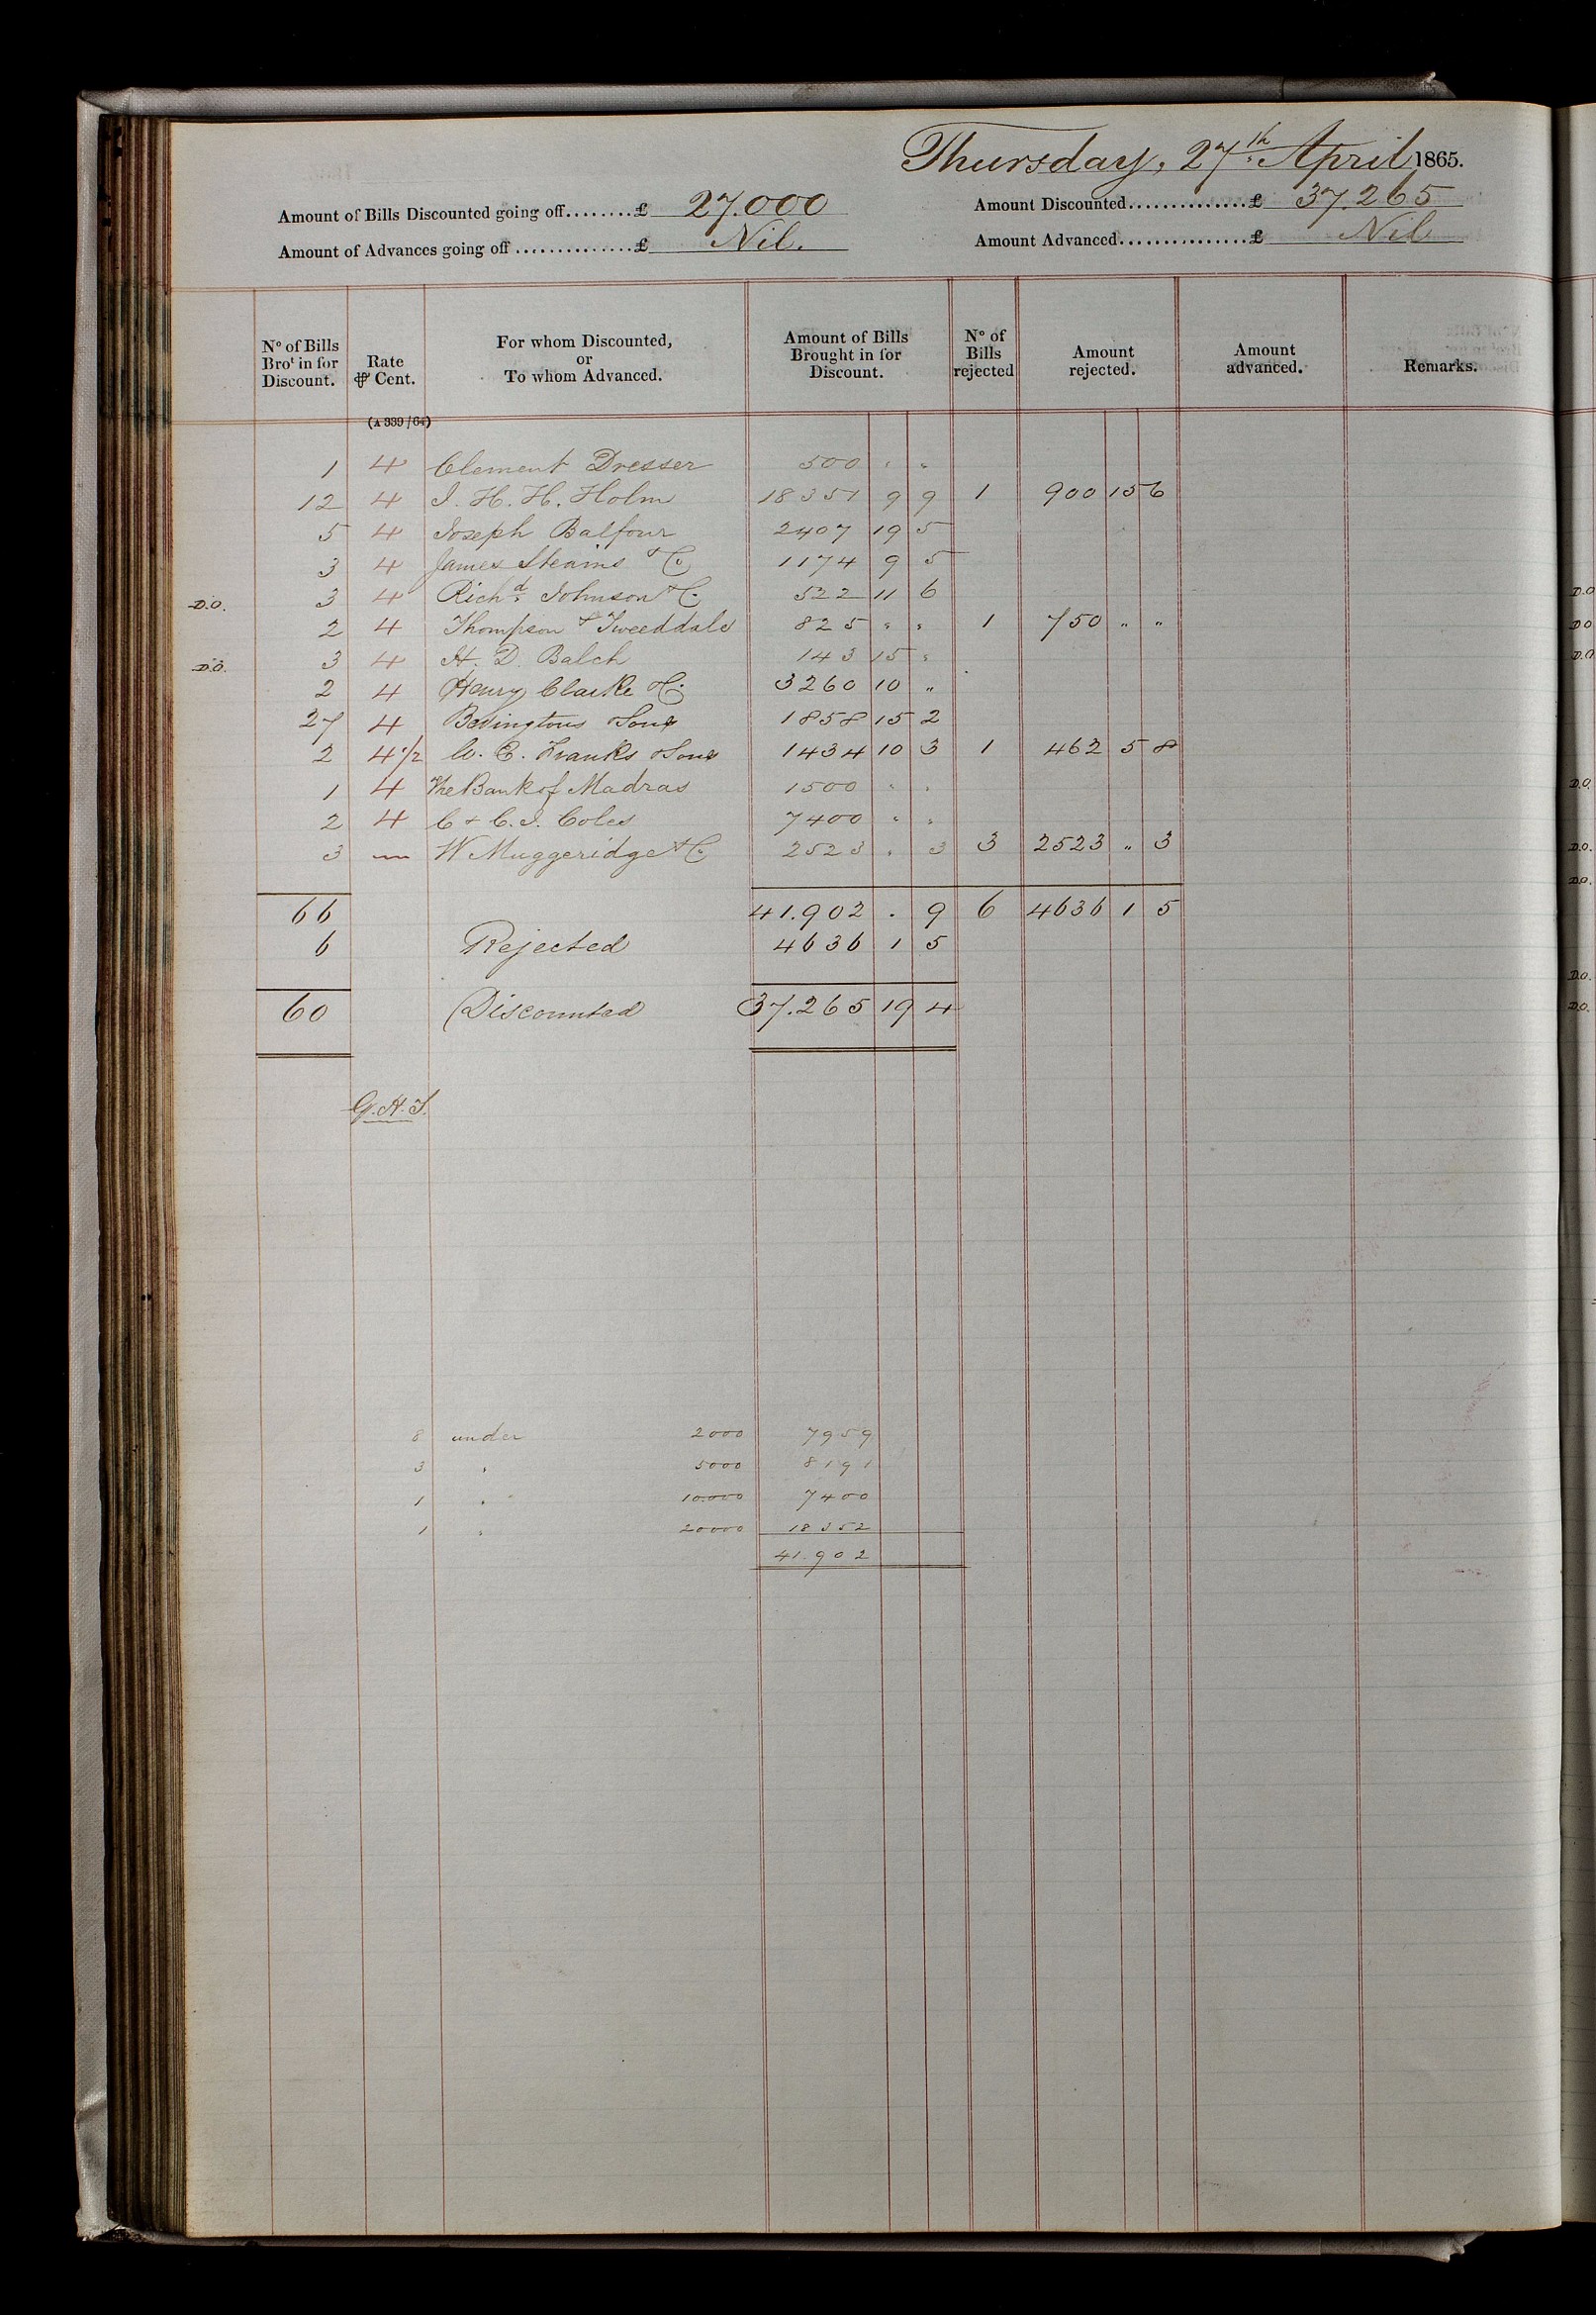 Thursday, 27th April 1865.
Amount of Bills Discounted going off........£ 27.000 Amount Discounted...............£ 37.265
Amount of Advances going off...............£ Nil. Amount Advanced...............£ Nil
No of Bills Brot in for Discount. Rate ⅌ Cent. For whom Discounted, or To whom Advanced. Amount of Bills Brought in for Discount. No of Bills rejected Amount rejected. Amount advanced. Remarks.
(A 339/64)
1 4 Clement Dresser 500 " "
12 4 J. H. H. Holm 18351 9 9 1 900 15 6
5 4 Joseph Balfour 2407 19 5
3 4 James Steains & Co 1174 9 5
D.O. 3 4 Richd Johnson & Co 522 11 6
2 4 Thompson & Tweeddale 825 " " 1 750 " "
D.O. 3 4 H. D. Balch 143 15 "
2 4 Henry Clarke & Co 3260 10 "
27 4 Bevingtons & Sons 1858 15 2
2 4 1/2 W. C. Franks & Sons 1434 10 3 1 462 5 8
1 4 The Bank of Madras 1500 " "
2 4 C & C. J. Coles 7400 " "
3 — W Muggeridge & Co 2523 " 3 3 2523 " 3
66 41.902 . 9 6 4636 1 5
6 Rejected 4636 1 5
60 Discounted 37.265 19 4
G.H.T.
8 under 2000 7959
3 " 5000 8191
1 " 10.000 7400
1 " 20000 18352
41.902